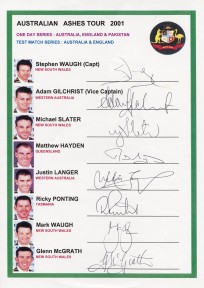 AUSTRALIAN ASHES TOUR 2001
ONE DAY SERIES : AUSTRALIA, ENGLAND & PAKISTAN
TEST MATCH SERIES : AUSTRALIA & ENGLAND
Stephen WAUGH (Capt)
NEW SOUTH WALES
Adam GILCHRIST (Vice Captain)
WESTERN AUSTRALIA
Michael SLATER
NEW SOUTH WALES
Matthew HAYDEN
QUEENSLAND
Justin LANGER
WESTERN AUSTRALIA
Ricky PONTING
TASMANIA
Mark WAUGH
NEW SOUTH WALES
Glenn McGRATH
NEW SOUTH WALES